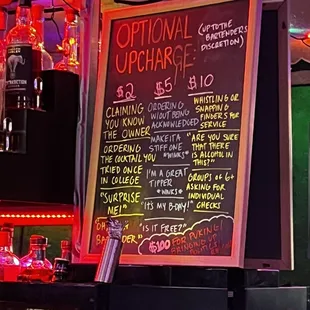 OPTIONAL
UPCHARGE
(UP TO THE
BARTENDERS
DISCRETION)
$2
CLAIMING
YOU KNOW
THE OWNER
ORDERING
THE COCKTAIL YOU
TRIED ONCE
IN COLLEGE
"SURPRISE
ME!"
$5
ORDERING
W/OUT BEING
ACKNOWLEDGED
MAKE IT A
STIFF ONE
*WINKS*
I'M A GREAT
TIPPER
*WINKS*
"IT'S MY B-DAY!"
"IS IT FREE?"
$10
WHISTLING OR
SNAPPING
FINGERS FOR
SERVICE
"ARE YOU SURE
THAT THERE
IS ALCOHOL IN
THIS?"
GROUPS OF 6+
ASKING FOR
INDIVIDUAL
CHECKS
$100 FOR PUKING/
BRINGING UP